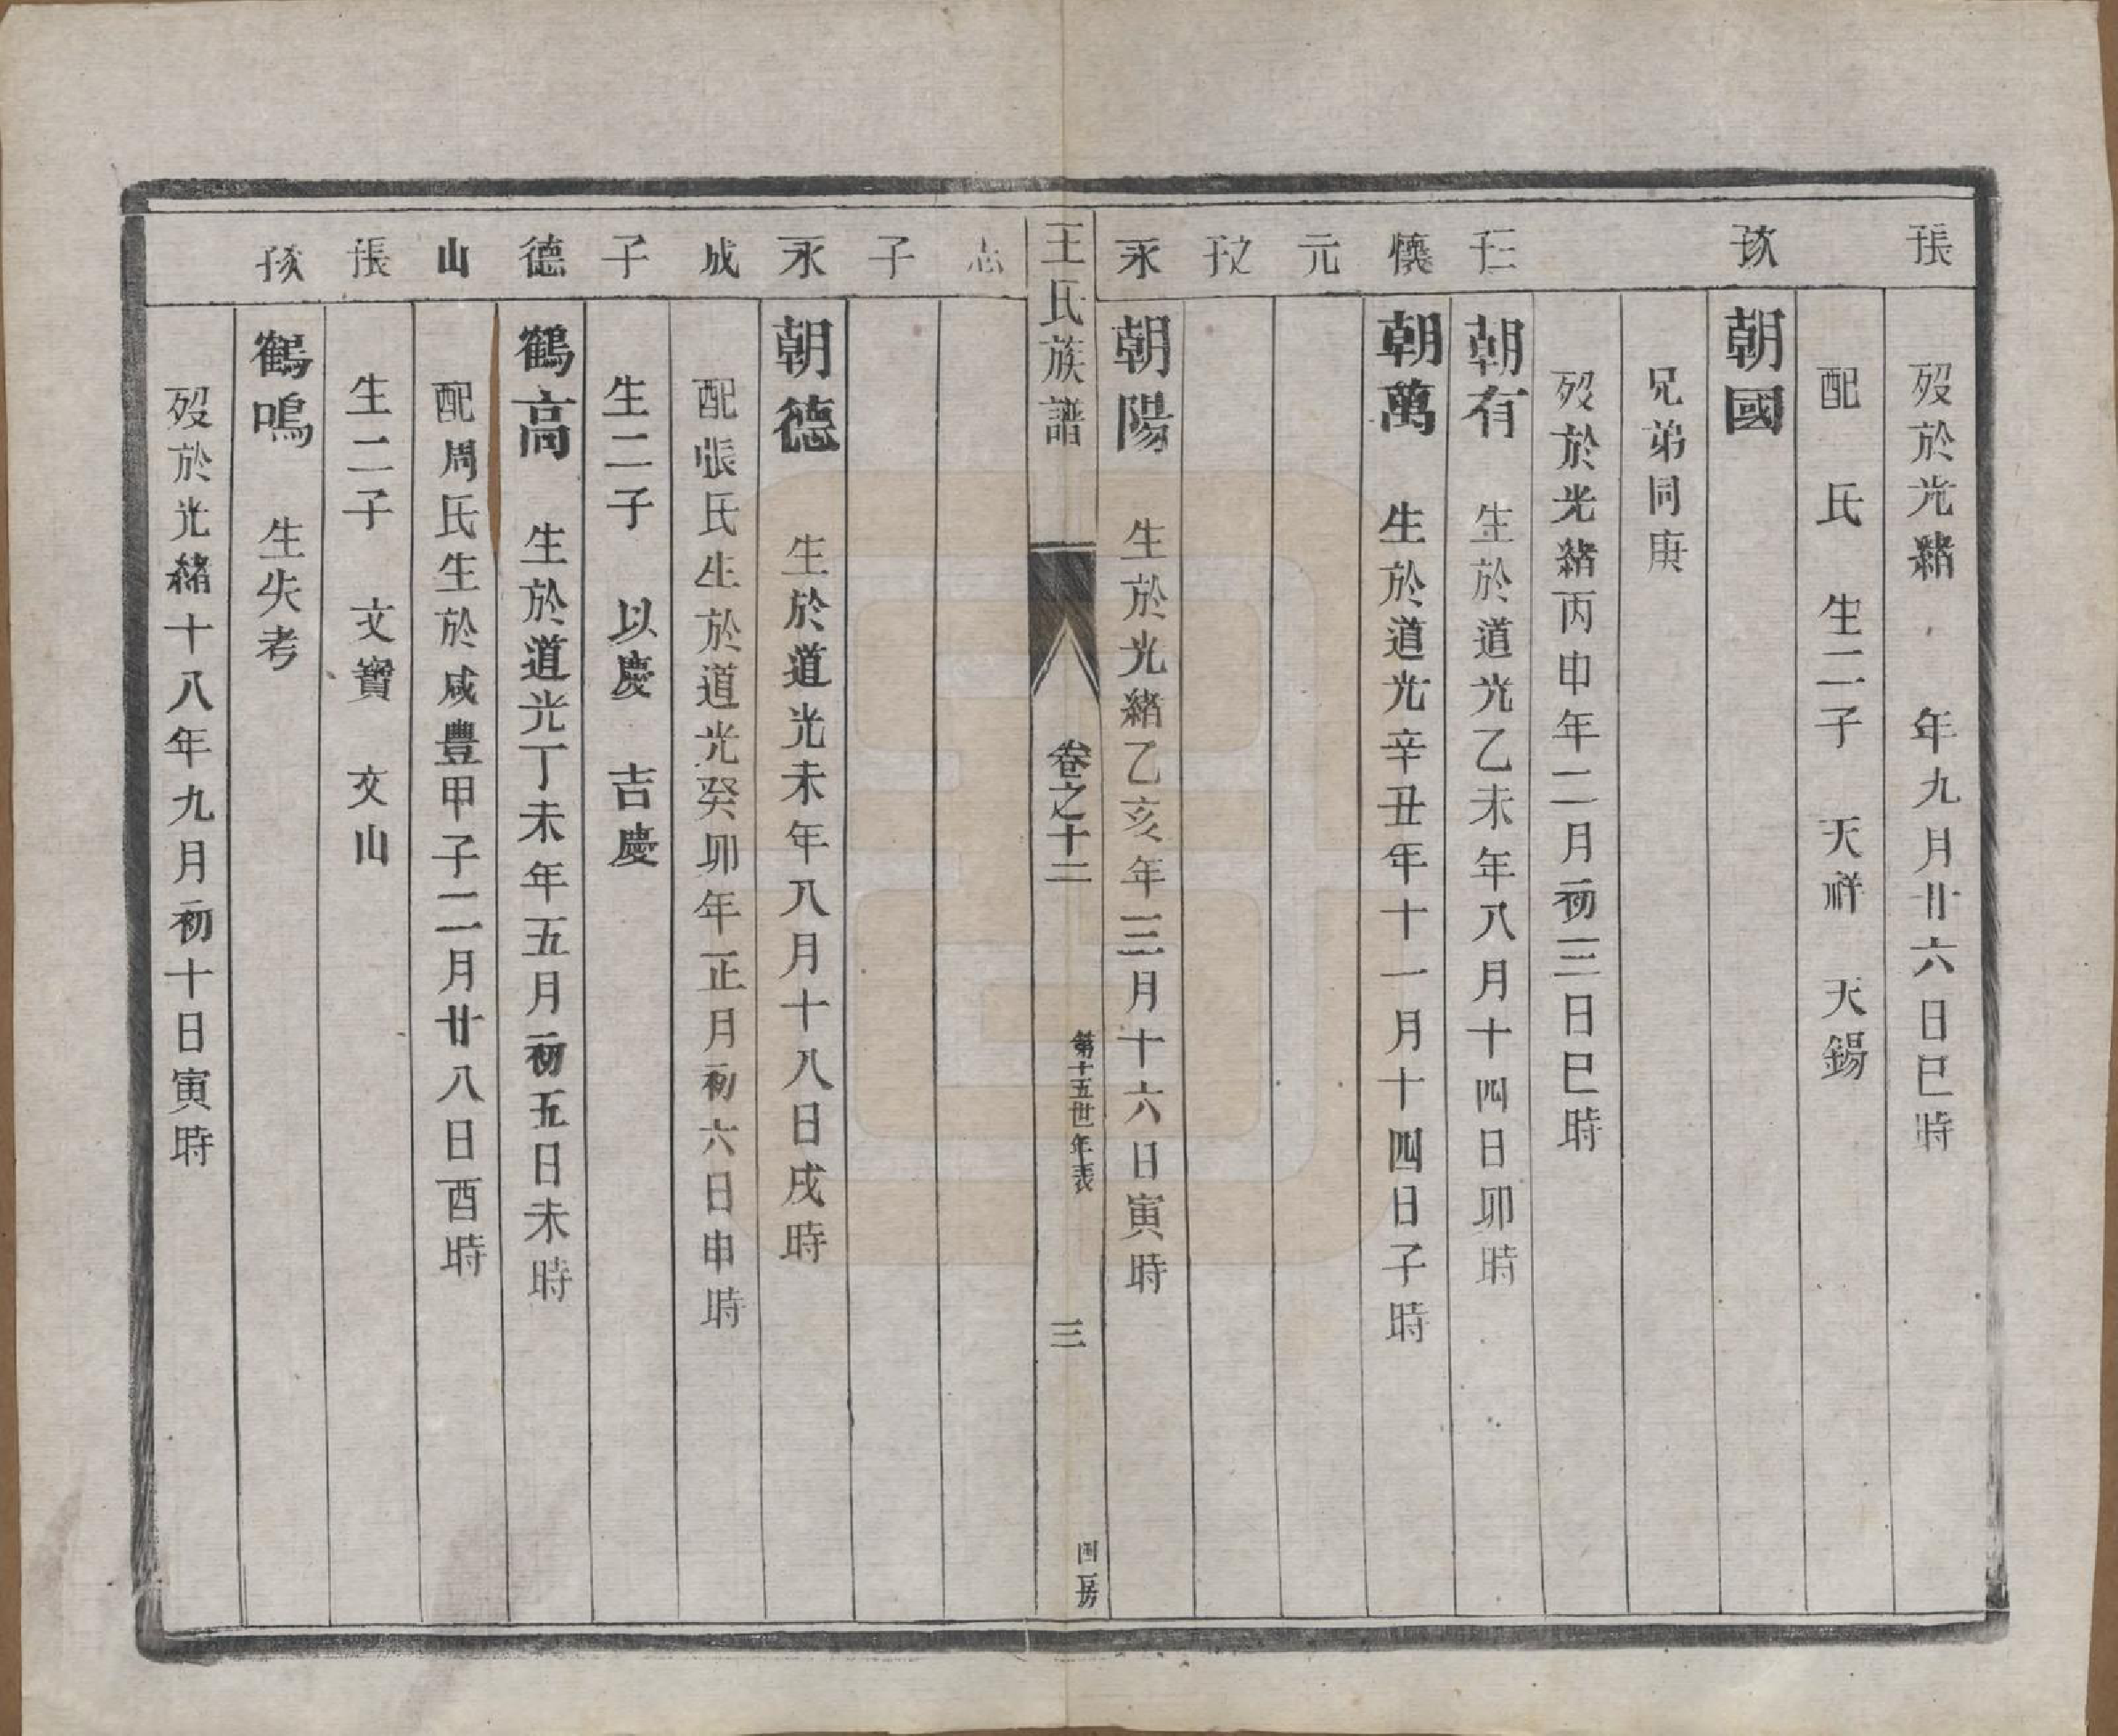 張
歿於光緒　年九月廿六日巳時
配　氏　生二子　天祥　天錫
朝國
兄弟同庚
歿於光緒丙申年二月初三日巳時
朝有　生於道光乙未年八月十四日卯時
懷
朝萬　生於道光辛丑年十一月十四日子時
元
永
朝陽　生於光緒乙亥年三月十六日寅時
王氏族譜　卷之十二　第十五世年表　三　四房
志
子
永
朝德　生於道光未年八月十八日戌時
成
配張氏生於道光癸卯年正月初六日申時
子
生二子　以慶　吉慶
德
鶴高　生於道光丁未年五月初五日未時
山
配周氏生於咸豐甲子二月廿八日酉時
張
生二子　文寶　文山
鶴鳴　生失考
歿於光緒十八年九月初十日寅時